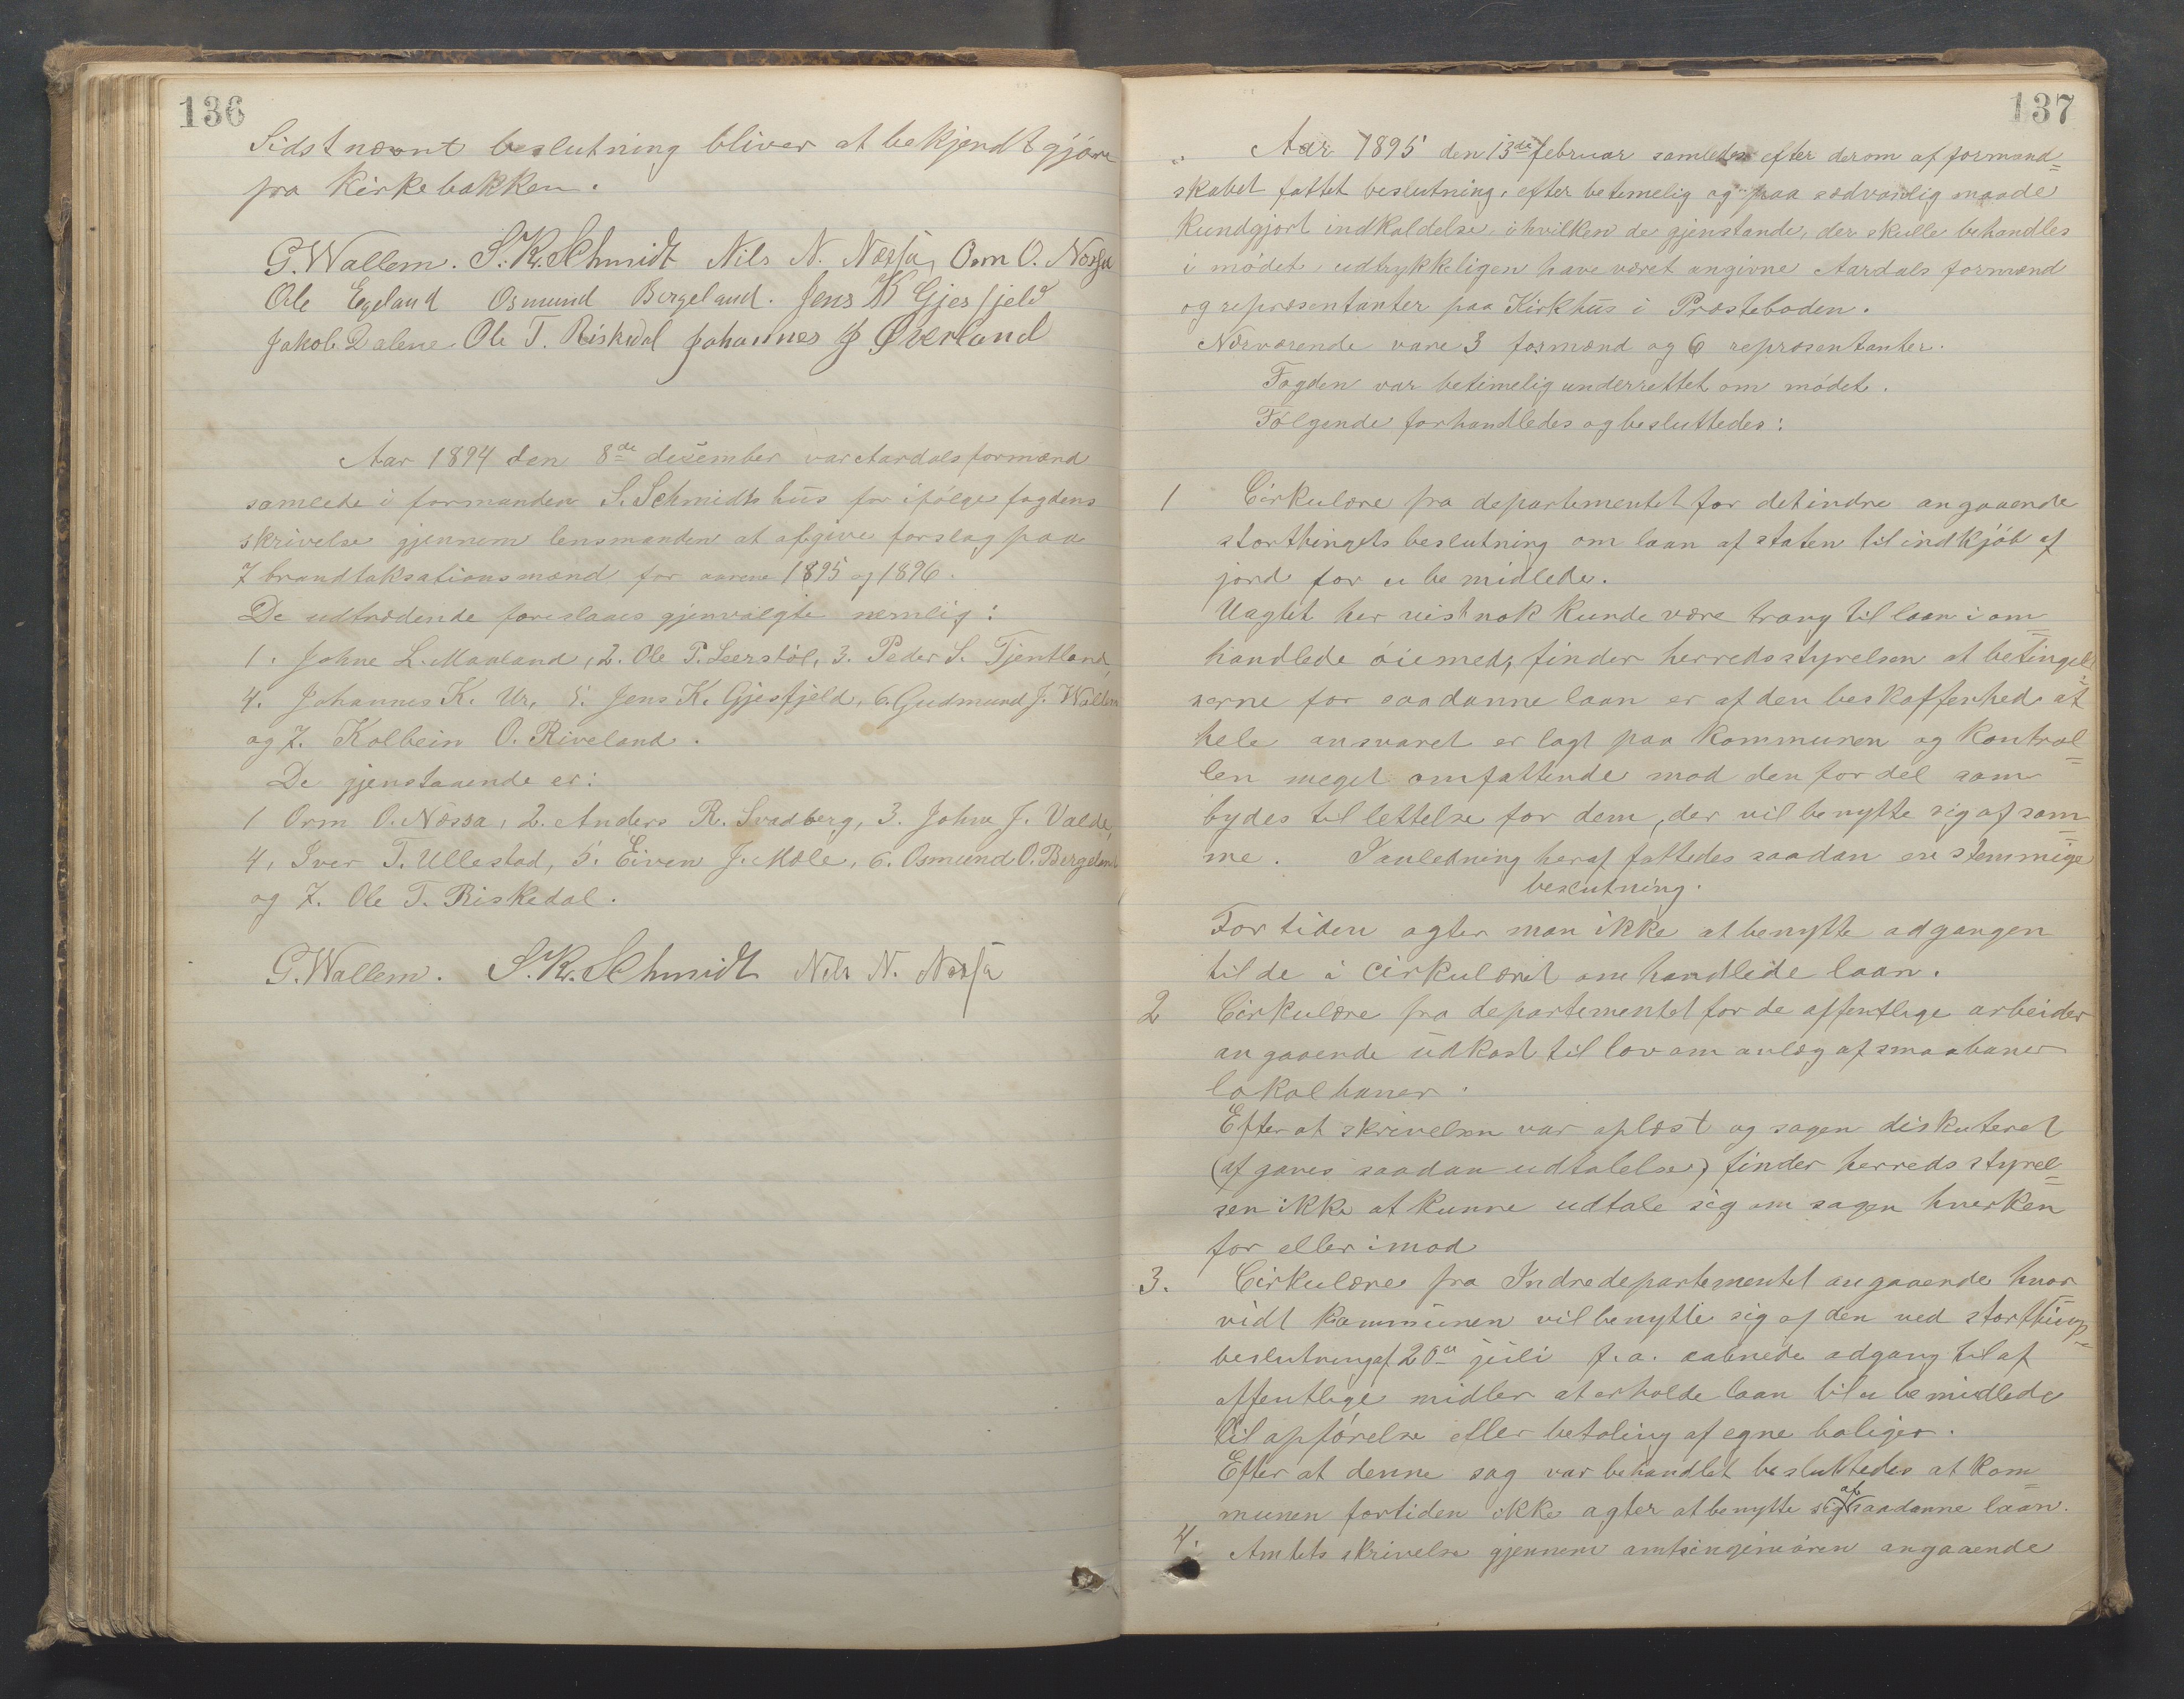 136
Sidst nævnt beslutning bliver at bekjendtgjøre
fra Kirkebakken.
G. Wallem. S. K. Schmidt Nils N. Næssa, Orm O. Næssa
Ole Egeland Osmund Bergeland. Jens K Gjesfjeld
Jakob Dalene Ole T. Riskedal Johannes J Øverland
Aar 1894 den 8de desember var Aardals formænd
samlede i formanden S. Schmidts hus for ifølge fogdens
skrivelse gjennem lensmanden at afgive forslag paa
7 brandtaksationsmænd for aarene 1895 og 1896.
De udtrædende foreslaaes gjenvalgte nemlig:
1. Johne L. Mauland, 2. Ole P. Leerstøl, 3. Peder S. Tjentland,
4. Johannes K. Ur, 5. Jens K. Gjesfjeld, 6. Gudmund J. Wallem
og 7. Kolbein O. Riveland.
De gjenstaaende er:
1 Orm O. Næssa, 2. Anders R. Svadberg, 3. John J. Valde,
4. Iver T. Ullestad, 5. Eiven J. Mæle, 6. Osmund O. Bergeland
og 7. Ole T. Riskedal.
G. Wallem. S. K. Schmidt Nils N. Næssa
137
Aar 1895 den 13de februar samledes efter derom af formand=
skabet fattet beslutning, efter betimelig og paa sædvanlig maade
kundgjort indkaldelse, i hvilken de gjenstande, der skulle behandles
i mødet, udtrykkeligen have været angivne Aardals formænd
og repræsentanter paa Kirkhus i Præsteboden.
Nærværende vare 3 formænd og 6 repræsentanter.
Fogden var betimelig underrettet om mødet.
Følgende forhandledes og besluttedes:
1 Cirkulære fra departementet for det indre angaaende
storthingets beslutning om laan af staten til indkjøb af
jord for ubemidlede.
Uagtet her vistnok kunde være trang til laan i om=
handlede øiemed, finder herredsstyrelsen at betingel=
serne for saadanne laan er af den beskaffenhed at
hele ansvaret er lagt paa kommunen og kontrol=
len meget omfattende mod den fordel som
bydes til lettelse for dem, der vil benytte sig af sam=
me. I anledning heraf fattedes saadan enstemmige
beslutning.
For tiden agter man ikke at benytte adgangen
til de i cirkulæret omhandlede laan.
2 Cirkulære fra departementet for de offentlige arbeider
angaaende udkast til lov om anlæg af smaabaner
lokalbaner.
Efter at skrivelsen var oplæst og sagen diskuteret
(afgaves saadan udtalelse) finder herredsstyrel=
sen ikke at kunne udtale sig om sagen hverken
for eller imod
3. Cirkulære fra Indredepartementet angaaende hvor=
vidt kommunen vil benytte sig af den ved storthings=
beslutning af 20de juli f. a. aabnede adgang til af
offentlige midler at erholde laan til ubemidlede
til opførelse eller betaling af egne boliger.
Efter at denne sag var behandlet besluttedes at kom=
munen fortiden ikke agter at benytte sig af saadanne laan.
4. Amtets skrivelse gjennem amtsingeniøren angaaende